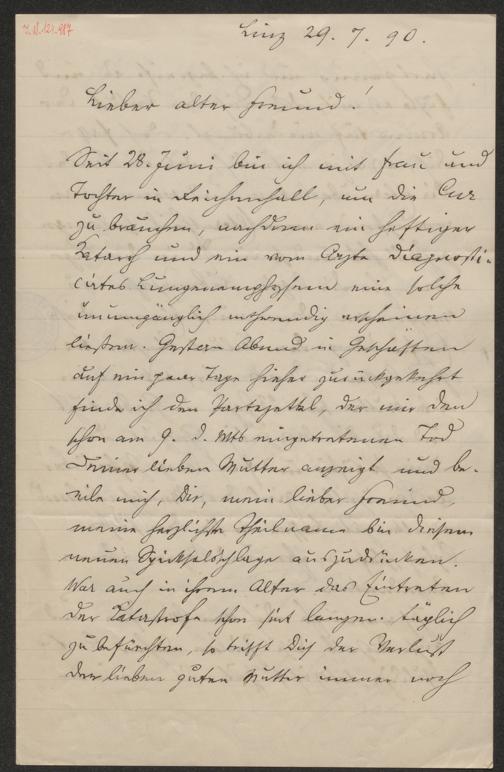 I.N. 121.487
Linz 29. 7. 90.
Lieber alter Freund!
Seit 28. Juni bin ich mit Frau und
Tochter in Reichenhall, um die Cur
zu brauchen, nachdem ein heftiger
Katarrh und ein vom Arzte diagnosti-
cirtes Lungenemphysem eine solche
unumgänglich nothwendig erscheinen
ließen. Gestern Abend in Geschäften
auf ein paar Tage hieher zurückgekehrt
finde ich den Partezettel, der mir den
schon am 9. d. Mts eingetretenen Tod
Deiner lieben Mutter anzeigt und be-
eile mich, Dir, mein lieber Freund,
meine herzlichste Theilname bei diesem
neuen Schicksalsschlage auszudrücken.
War auch in ihrem Alter das Eintreten
der Katastrofe schon seit langem täglich
zu befürchten, so trifft Dich der Verlust
der lieben guten Mutter immer noch